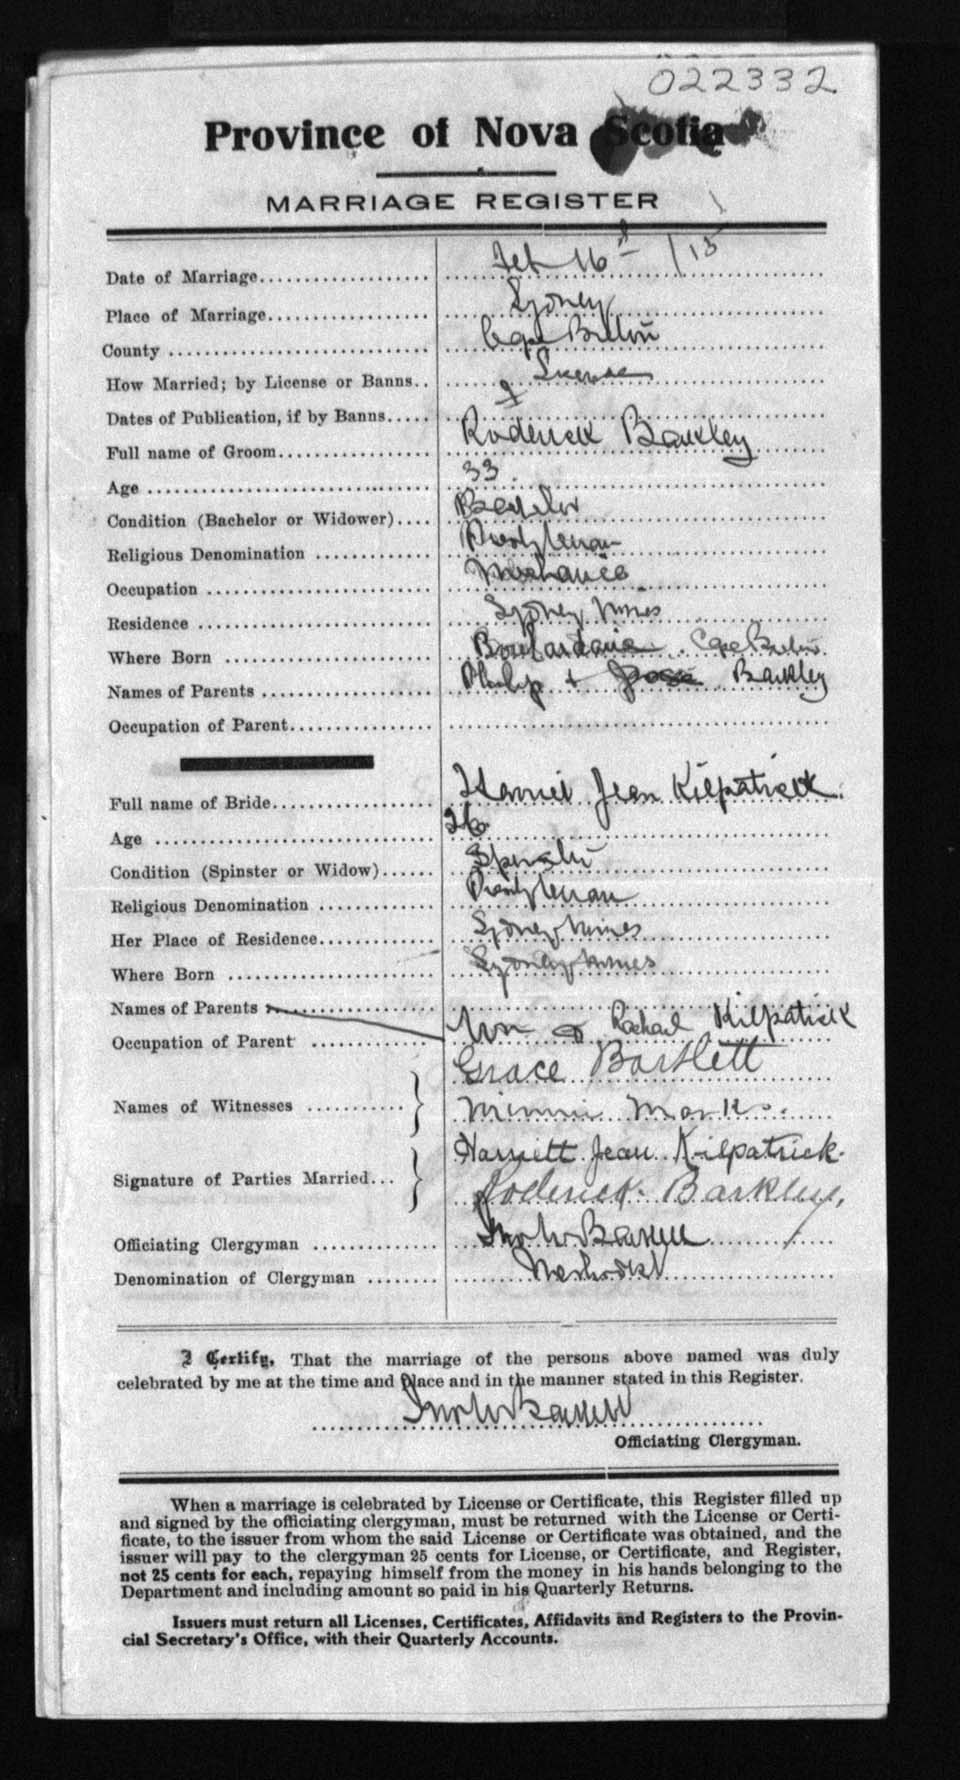 022332
Province of Nova Scotia
MARRIAGE REGISTER
Date of Marriage Feb 16 /15
Place of Marriage Sydney
County Cape Breton
How Married; by License or Banns License
Dates of Publication, if by Banns
Full name of Groom Roderick Barkley
Age 33.
Condition (Bachelor or Widower) Bachelor
Religious Denomination Presbyterian
Occupation Mechanic
Residence Sydney Mines
Where Born Boulardarie Cape Breton
Names of Parents Philip + Barkley
Occupation of Parent
Full name of Bride Harriet Jean Kilpatrick.
Age 26
Condition (Spinster or Widow) Spinster
Religious Denomination Presbyterian
Her Place of Residence Sydney Mines
Where Born Sydney Mines
Names of Parents
Occupation of Parent Wm & Rachael Kilpatrick
Grace Bartlett
Names of Witnesses Minnie Marks.
Harriett Jean Kilpatrick.
Signature of Parties Married... Roderick Barkley,
Officiating Clergyman
Denomination of Clergyman Methodist
I Certify, That the marriage of the persons above named was duly
celebrated by me at the time and place and in the manner stated in this Register.
Officiating Clergyman.
When a marriage is celebrated by License or Certificate, this Register filled up
and signed by the officiating clergyman, must be returned with the License or Certi-
ficate, to the issuer from whom the said License or Certificate was obtained, and the
issuer will pay to the clergyman 25 cents for License, or Certificate, and Register,
not 25 cents for each, repaying himself from the money in his hands belonging to the
Department and including amount so paid in his Quarterly Returns.
Issuers must return all Licenses, Certificates, Affidavits and Registers to the Provin-
cial Secretary's Office, with their Quarterly Accounts.